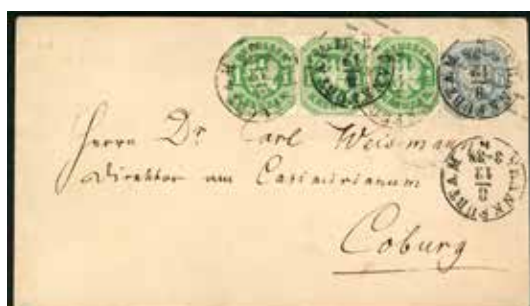 Herrn Dr Carl Weismann
Direktor am Casimirianum
Coburg
FRANKFURT A M